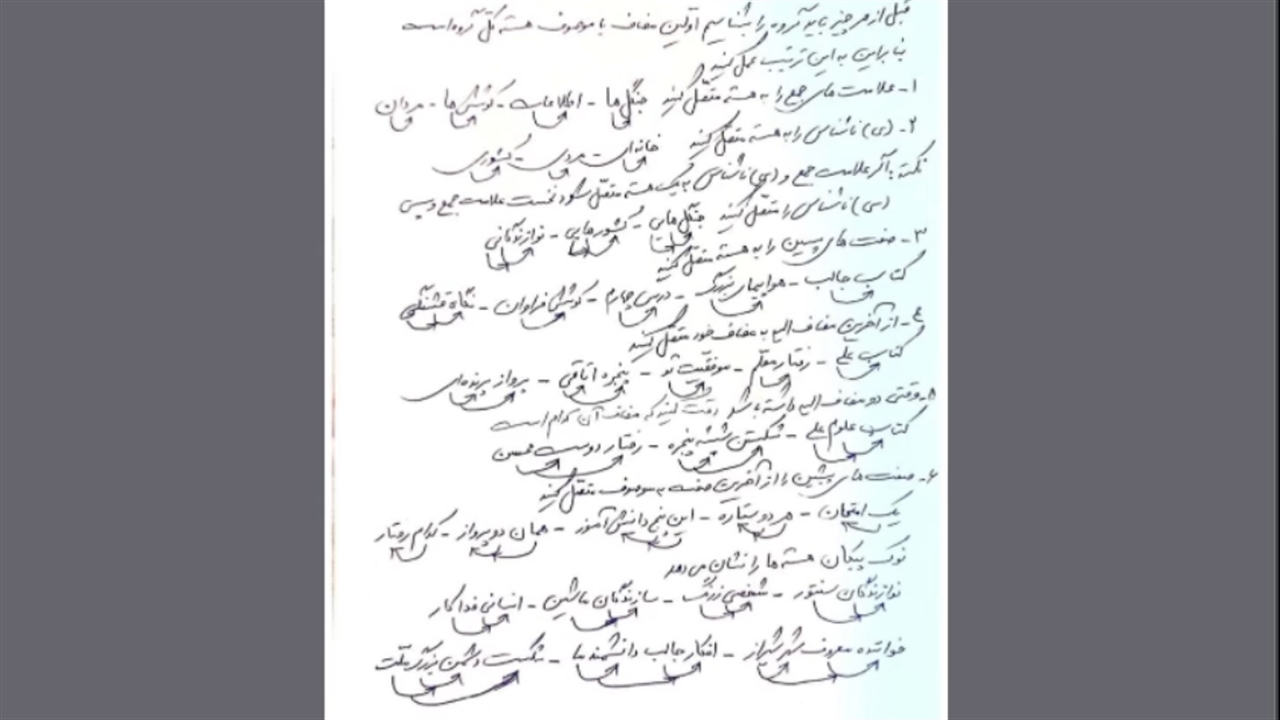 قبل از هر چیز باید گروه را بشناسیم اولین مضاف یا موصوف هسته کل گروه است
بنابراین به این ترتیب عمل کنید
۱- علامت های جمع را به هسته متصل کنید جنگل ها - اطلاعات - کوشش ها - مردان
۲- (ی) ناشناس را به هسته متصل کنید خانه ای - مردی - کشوری
نکته: اگر علامت جمع و (ی) ناشناس به یک هسته متصل شود نخست علامت جمع و سپس
(ی) ناشناس را متصل کنید جنگل هایی - کشورهایی - نوازندگانی
۳- صفت های پسین را به هسته متصل کنید
کتاب جالب - هواپیمای بزرگ - درس چهارم - کوشش فراوان - نگاه قشنگی
۴- از آخرین مضاف الیه به مضاف خود متصل کنید
کتاب علی - رفتار معلم - موفقیت تو - پنجره اتاقی - پرواز پرنده ای
۵- وقتی دو مضاف الیه داشته باشد دقت کنید که مضاف آن کدام است
کتاب علوم علی - شکستن شیشه پنجره - رفتار دوست محسن
۶- صفت های پیشین را از آخرین صفت به موصوف متصل کنید
یک امتحان - هر دو ستاره - این پنج دانش آموز - همان دو پرواز - کدام رفتار
نوک پیکان هسته ها را نشان می دهد
نوازندگان سنتور - شخصی بزرگ - سازندگان ماشین - انسانی فداکار
خواننده معروف شهر شیراز - افکار جالب دانشمند ما - شکست دشمن بزرگ ملت